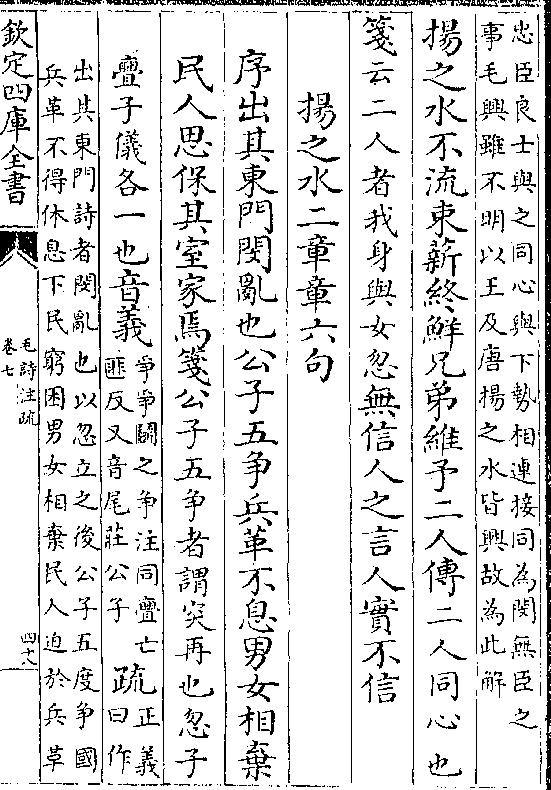 忠臣良士與之同心與下勢相連接同為閔無臣之
事毛興雖不明以王及唐揚之水皆興故為此解
揚之水不流束薪終鮮兄弟維予二人傳二人同心也
箋云二人者我身與女忽無信人之言人實不信
揚之水二章章六句
序出其東門閔亂也公子五爭兵革不息男女相棄
民人思保其室家焉箋公子五爭者謂突再也忽子
亹子儀各一也音義
爭爭鬬之爭注同亹亡
匪反又音尾莊公子
疏
正義
曰作
出其東門詩者閔亂也以忽立之後公子五度爭國
兵革不得休息下民窮困男女相棄民人迫於兵革
欽定四庫全書
毛詩注疏
卷七
四十八